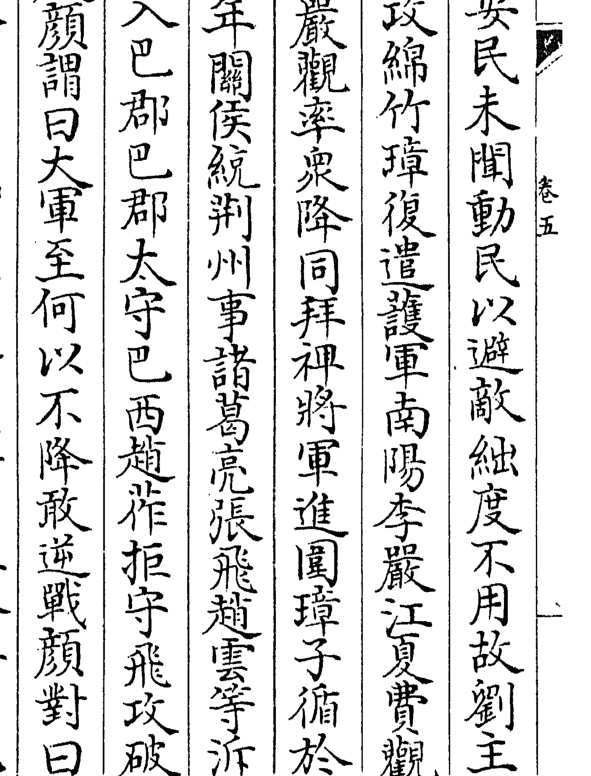 卷五
安民未聞動民以避敵絀度不用故劉主
攻綿竹璋復遣護軍南陽李嚴江夏費觀
嚴觀率衆降同拜裨將軍進圍璋子循於
年關侯統荆州事諸葛亮張飛趙雲等泝
入巴郡巴郡太守巴西趙莋拒守飛攻破
顔謂曰大軍至何以不降敢逆戰顔對曰